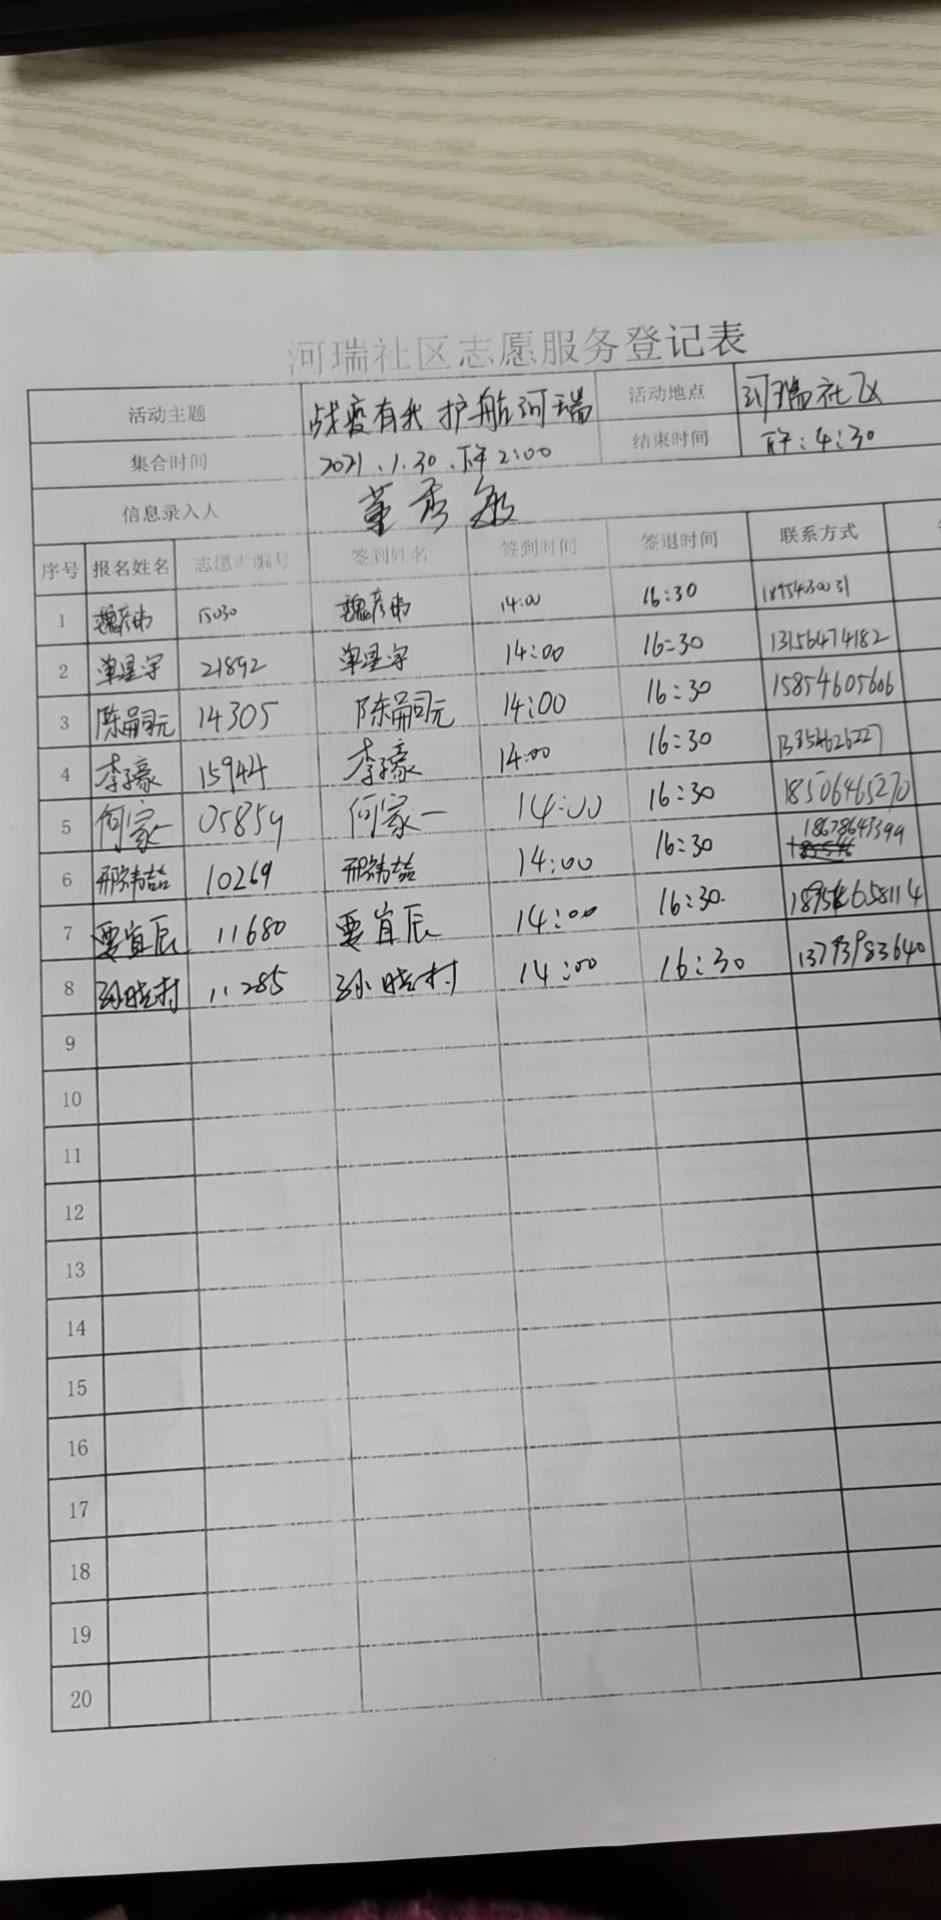 河瑞社区志愿服务登记表
活动主题 战疫有我 护航河瑞 活动地点 河瑞社区
集合时间 2021.1.30.下午2:00 结束时间 下午:4:30
信息录入人 董秀敏
序号 报名姓名 志愿者编号 签到姓名 签到时间 签退时间 联系方式
1 魏彦彬 15030 魏彦彬 14:00 16:30
2 单星宇 21892 单星宇 14:00 16:30 13156474182
3 陈嗣元 14305 陈嗣元 14:00 16:30 15854605606
4 李豪 15944 李豪 14:00 16:30 13354626227
5 何家一 05859 何家一 14:00 16:30 18506465270
6 10269 14:00 16:30 18678643399
7 要宜辰 11680 要宜辰 14:00 16:30. 18954658114
8 孙晓村 11285 孙晓村 14:00 16:30 13793983640
9
10
11
12
13
14
15
16
17
18
19
20